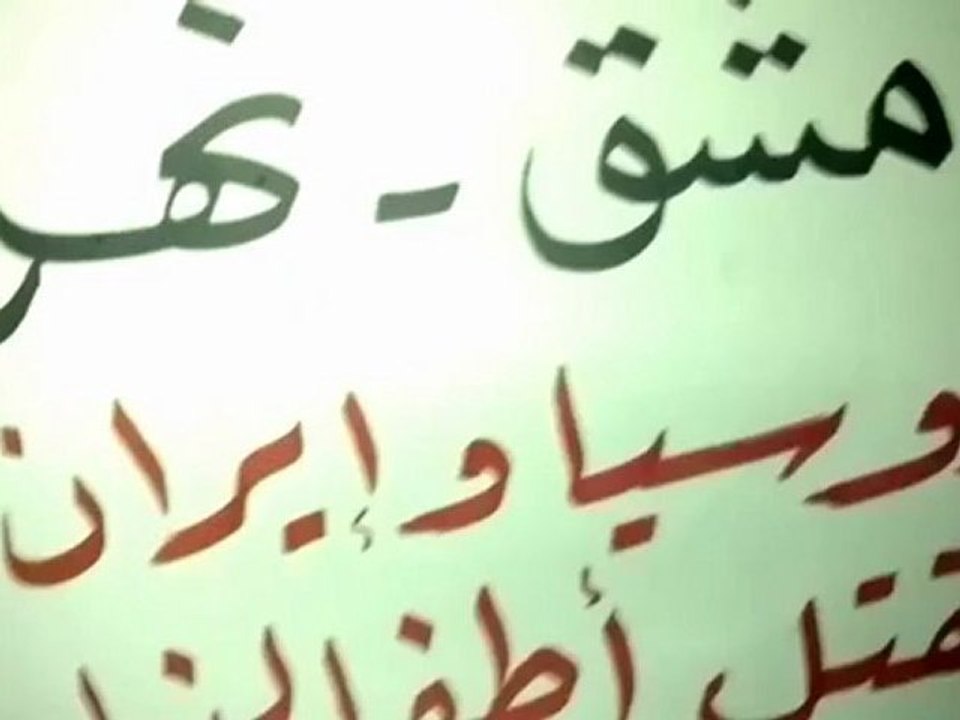 مشق - نهر
وسيا و إيران
قتل أطفالنا